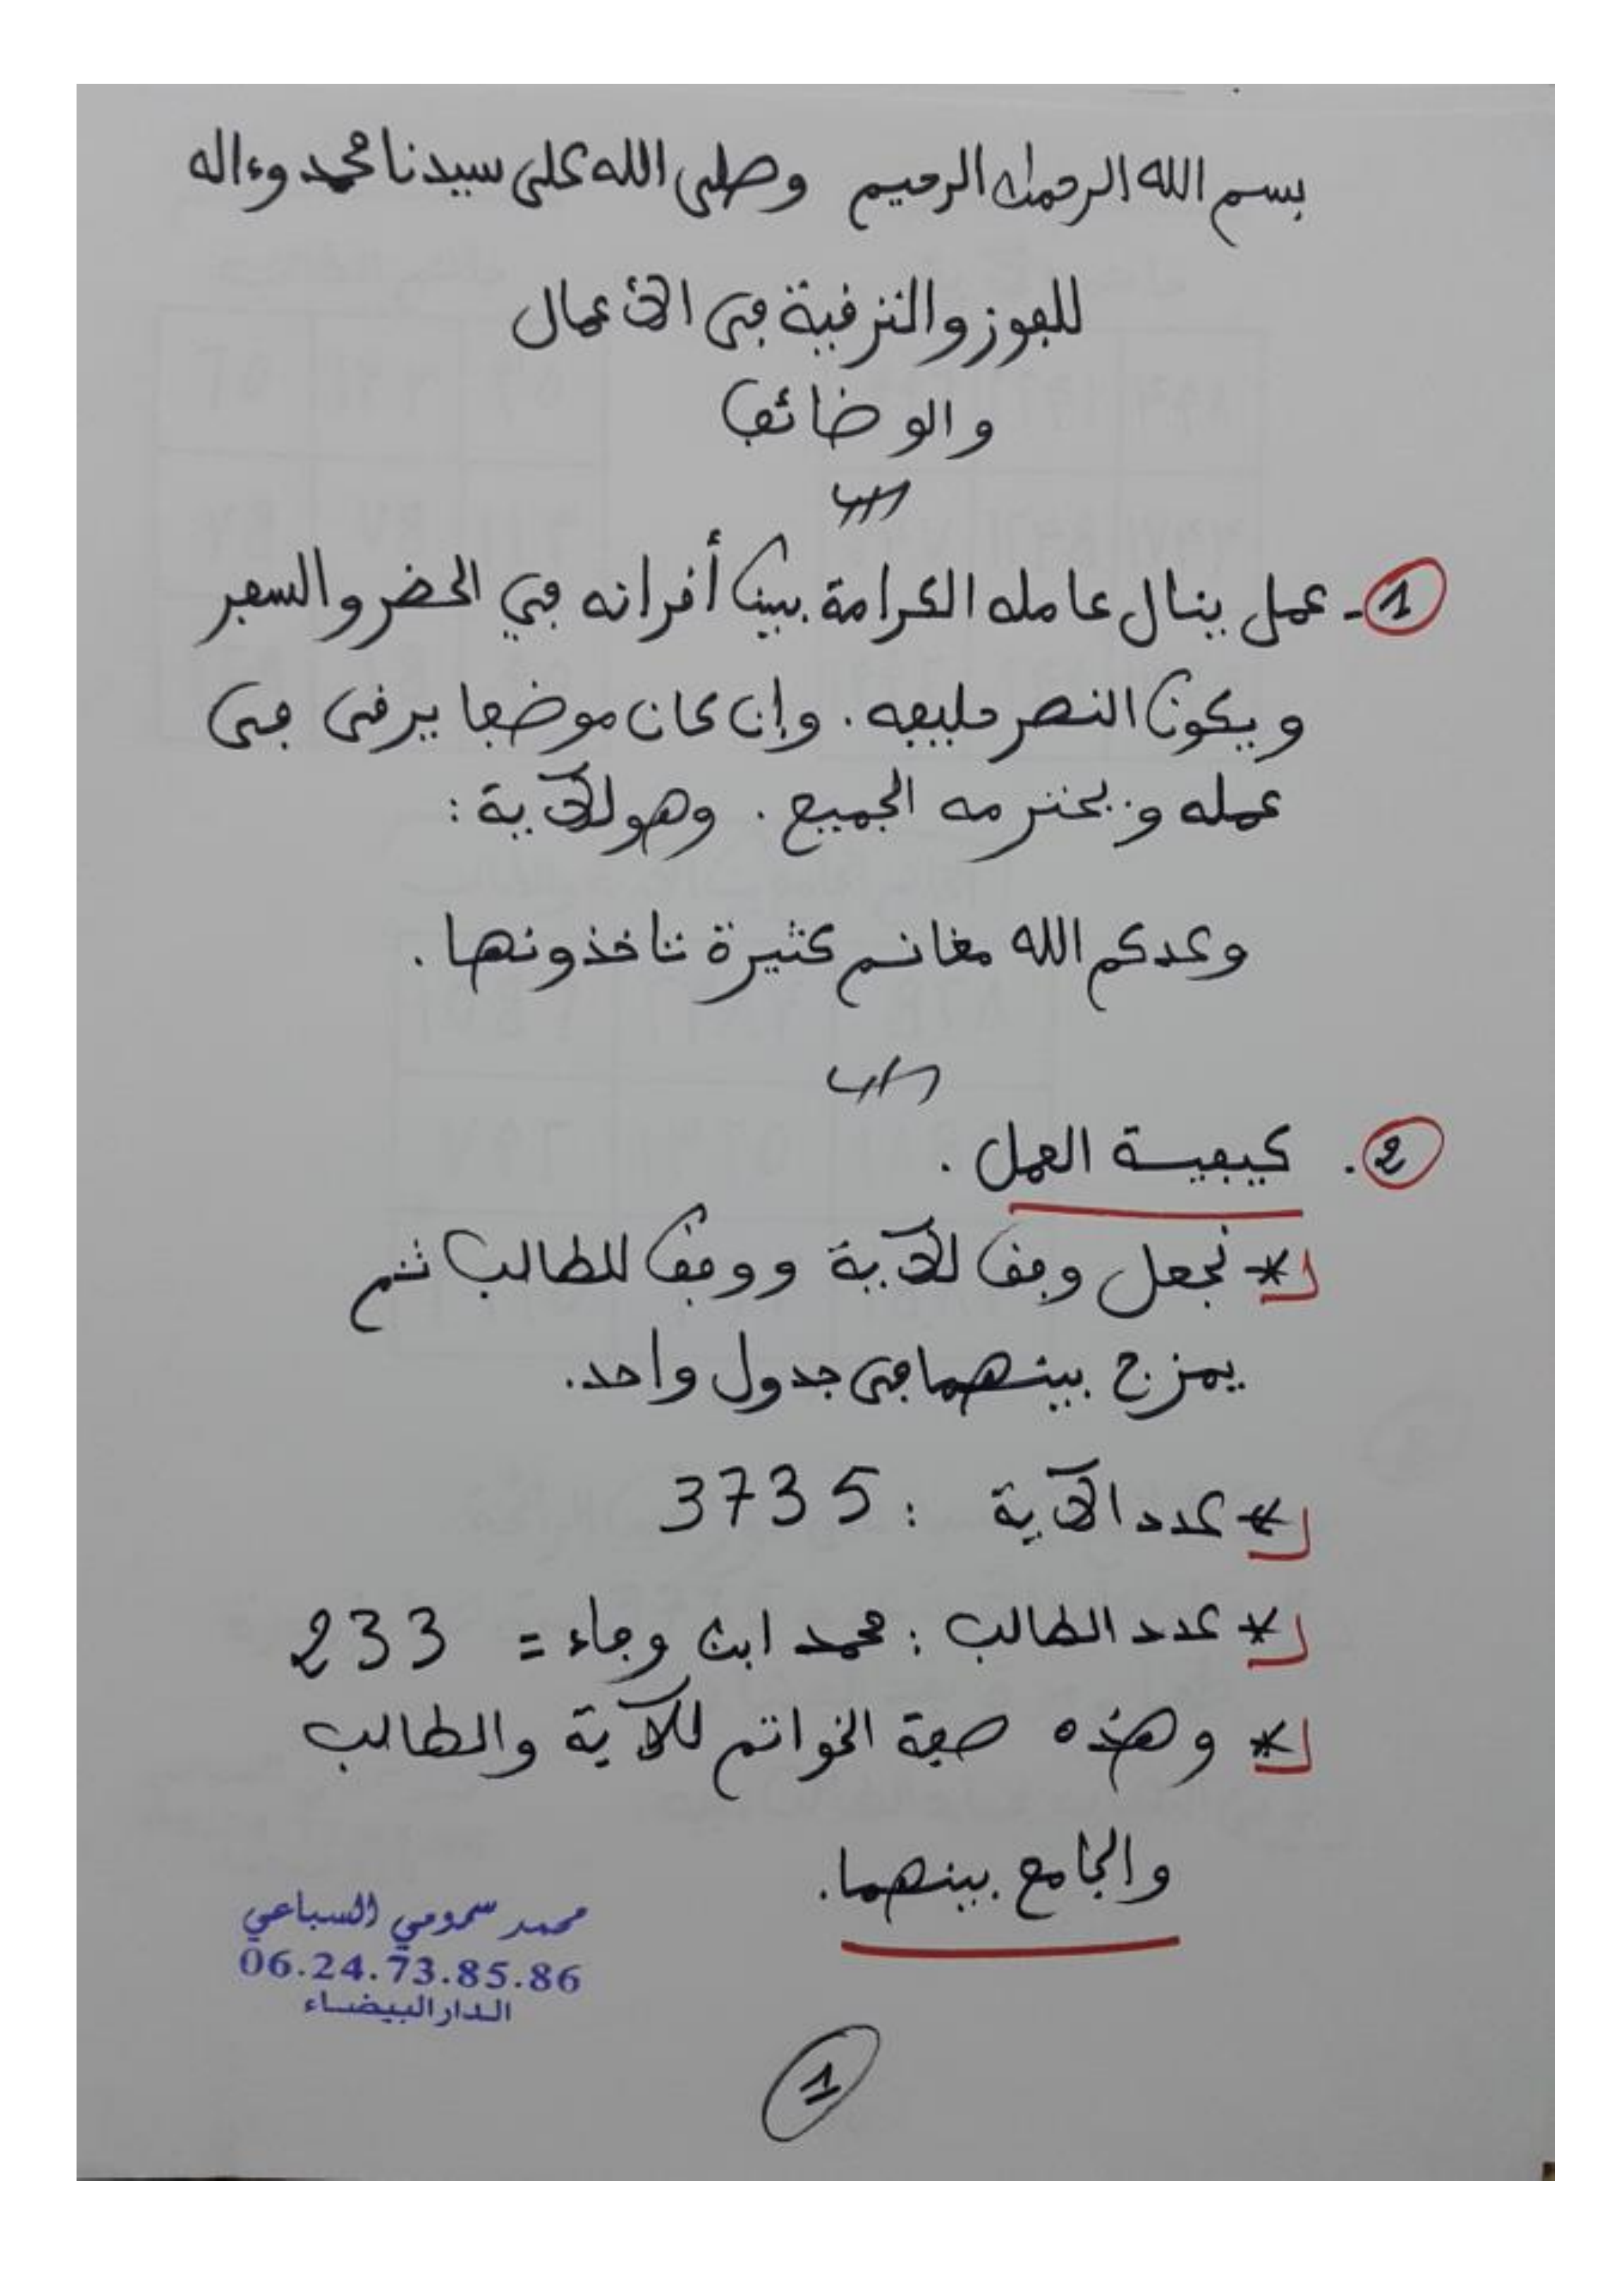 بسم الله الرحمان الرحيم وصلى الله على سيدنا محمد وءاله
للفوز والترقية في الأعمال
والوضائف
1- عمل ينال عامله الكرامة بين أقرانه في الحضر والسفر
ويكون النصر حليفه. وإن كان موضفا يرقى في
عمله ويحترمه الجميع. وهو للآية :
وعدكم الله مغانم كثيرة تاخذونها.
2. كيفية العمل.
* نجعل وفق للآية ووفق للطالب ثم
يمزج بينهما في جدول واحد.
* عدد الآية : 3735
* عدد الطالب : محمد ابن وجاء = 233
* وهذه صفة الخواتم للآية والطالب
والجامع بينهما.
محمد سمومي السباعي
06.24.73.85.86
الدار البيضاء
1